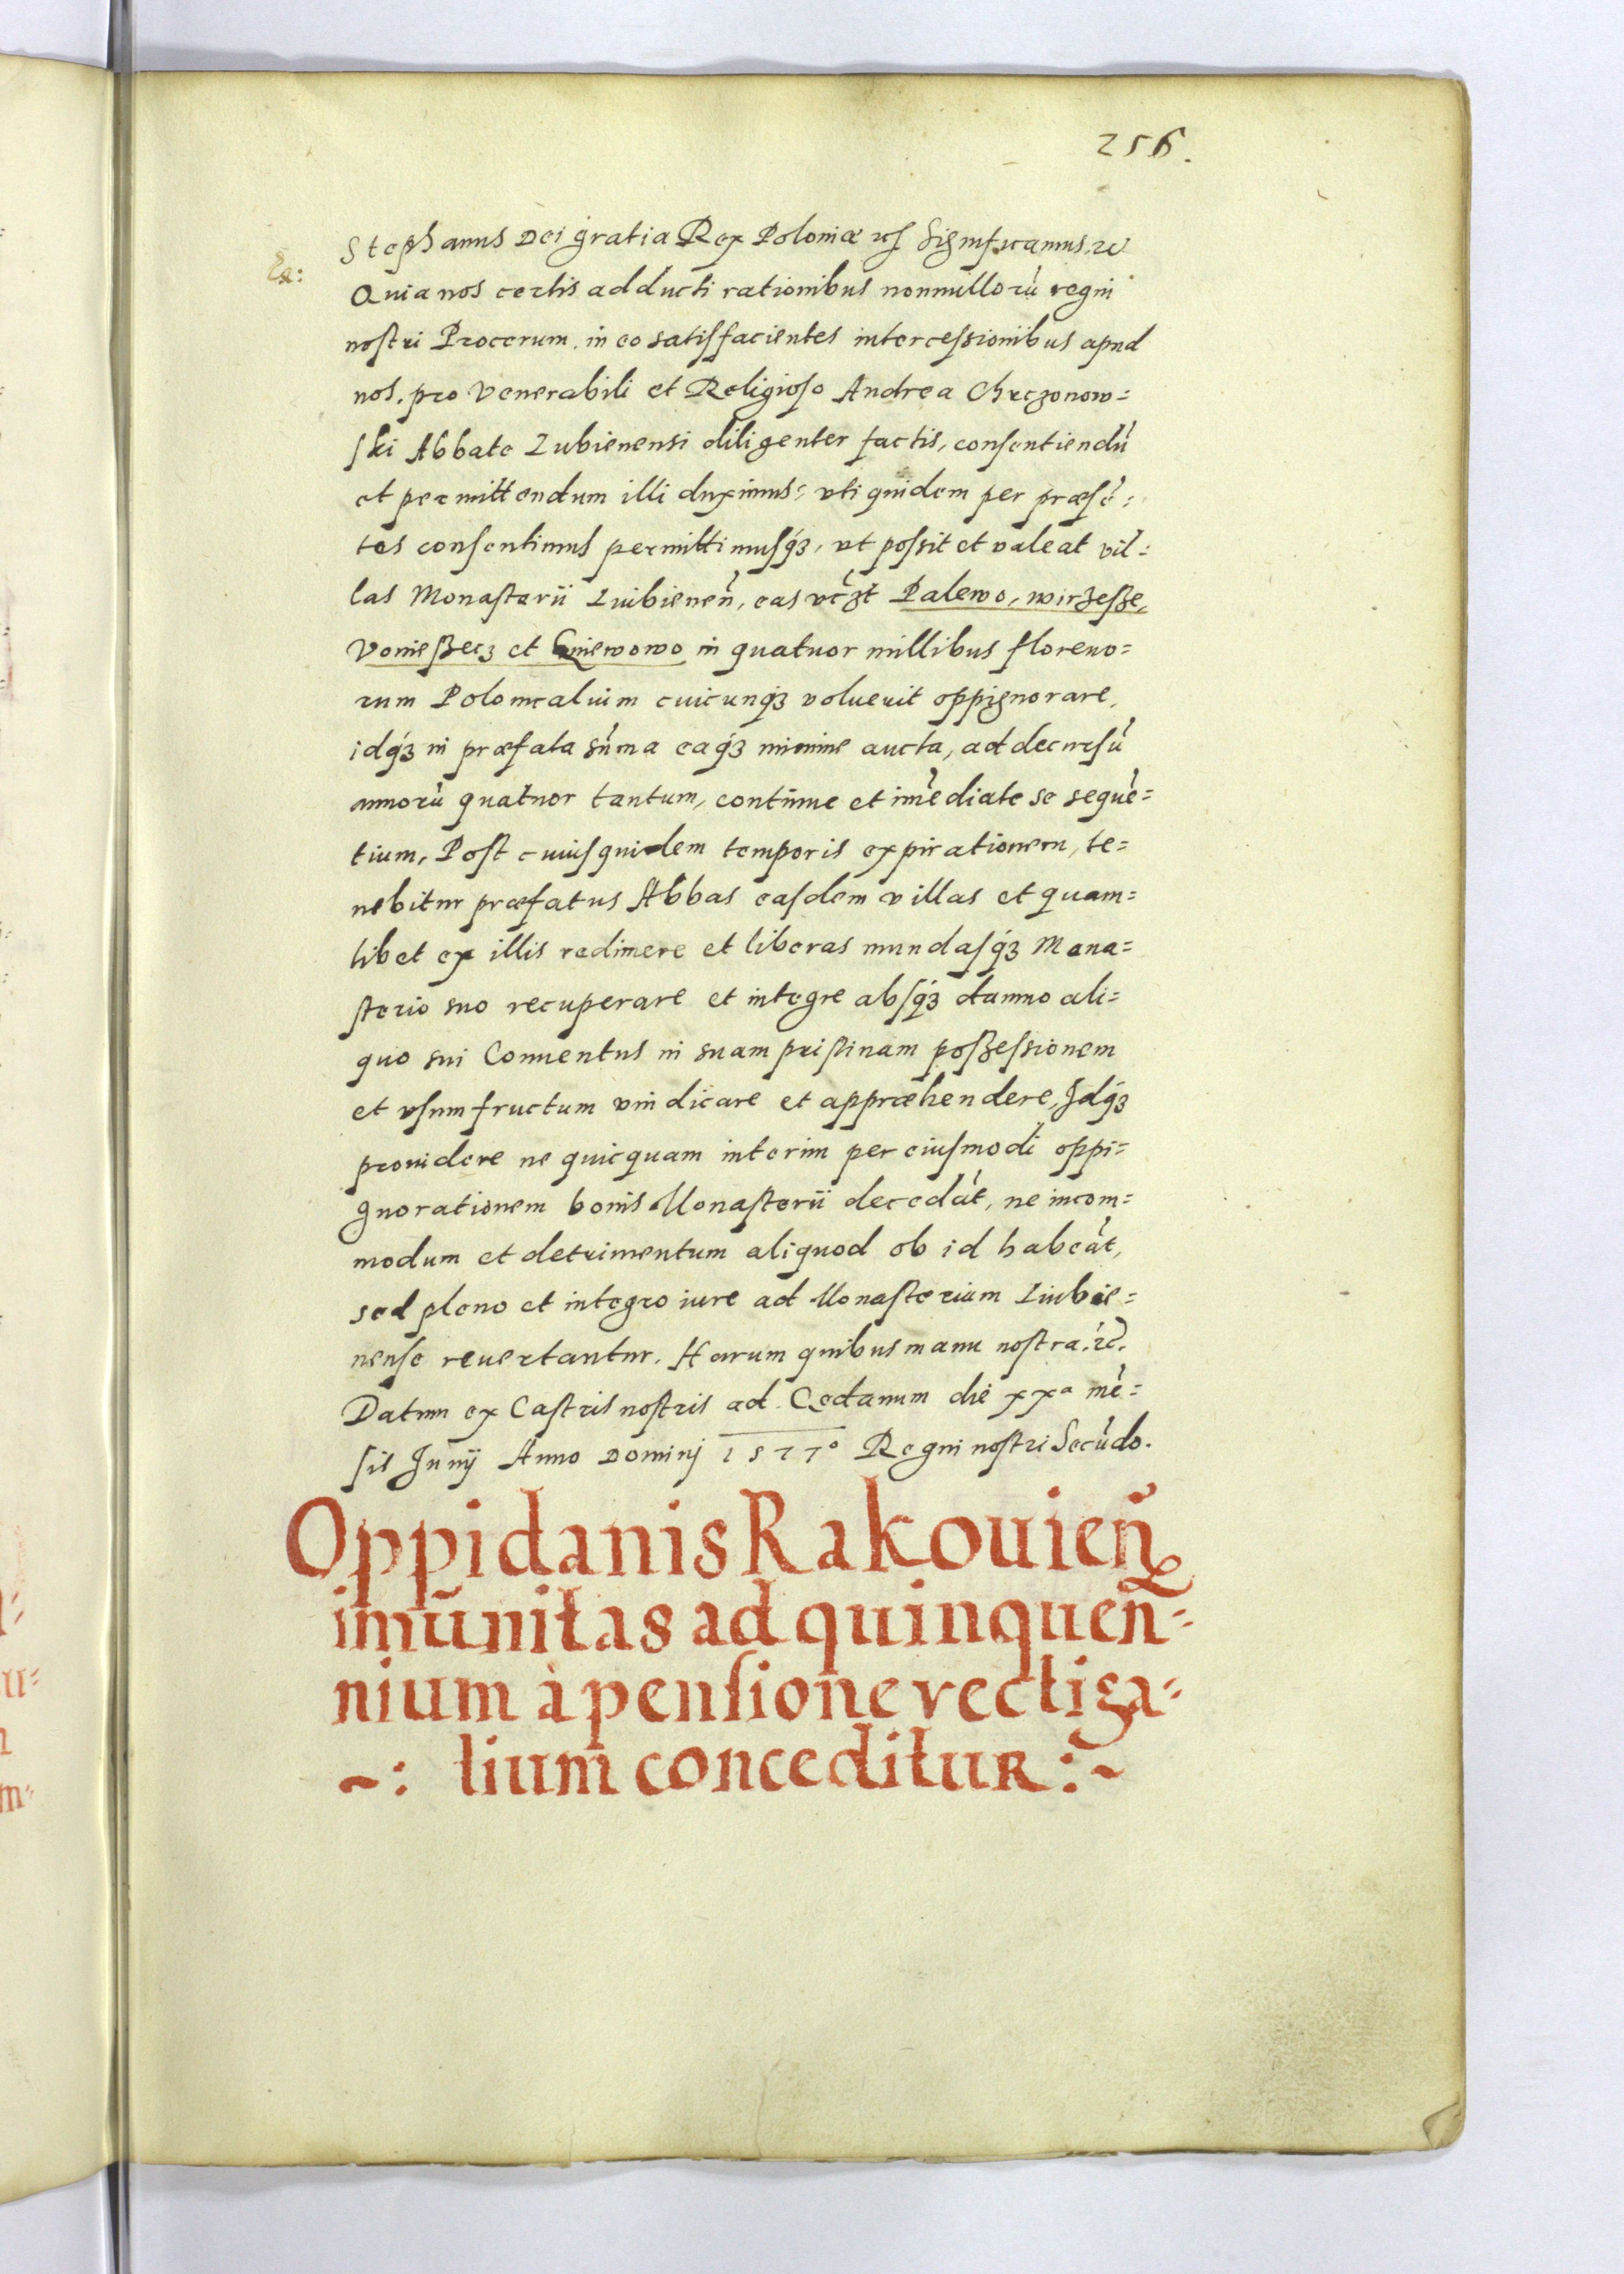 256.
Stephanus Dei gratia Rex Poloniæ etc Significamus, etc
Quia nos certis adducti rationibus nonnullorũ regni
nostri Procerum, in eo satisfacientes intercessionibus apud
nos, pro Venerabili et Religioso Andrea Chrczonow=
ski Abbate Lubienensi diligenter factis, consentiendũ
et permittendum illi duximus, uti quidem per præsẽ=
tes consentimus permittimusq3, ut possit et valeat vil=
las Monasterii Lubienen̄, eas vc̃3t Palewo, wirzesze,
Vonieszecz et Gniewowo in quatuor millibus floreno=
rum Polonicalium cuicunq3 voluerit oppignorare,
idq3 in præfata sũma eaq3 minime aucta, ad decursũ
annorũ quatuor tantum, continue et im̃ediate se sequẽ=
tium, Post cuiusquidem temporis expirationem, te=
nebitur præfatus Abbas easdem villas et quam=
libet ex illis redimere et liberas mundasq3 Mona=
sterio suo recuperare et integre absq3 damno ali=
quo sui Conuentus in suam pristinam poszessionem
et vsumfructum vindicare et appræhendere, Idq3
prouidere ne quicquam interim per eiusmodi oppi=
gnorationem bonis Monasterii decedãt, ne incom=
modum et detrimentum aliquod ob id habeãt,
sed pleno et integro iure ad Monasterium Lubie=
nense reuertantur. Harum quibus manu nostra. etc.
Datum ex Castris nostris ad Gedanum die xxa mẽ=
sis Junij Anno Dominj 1577o Regni nostri Secũdo.
Oppidanis Rakouien̄
imūnitas ad quinquen̄=
nium à pensione vectiga=
~: lium conceditur :~